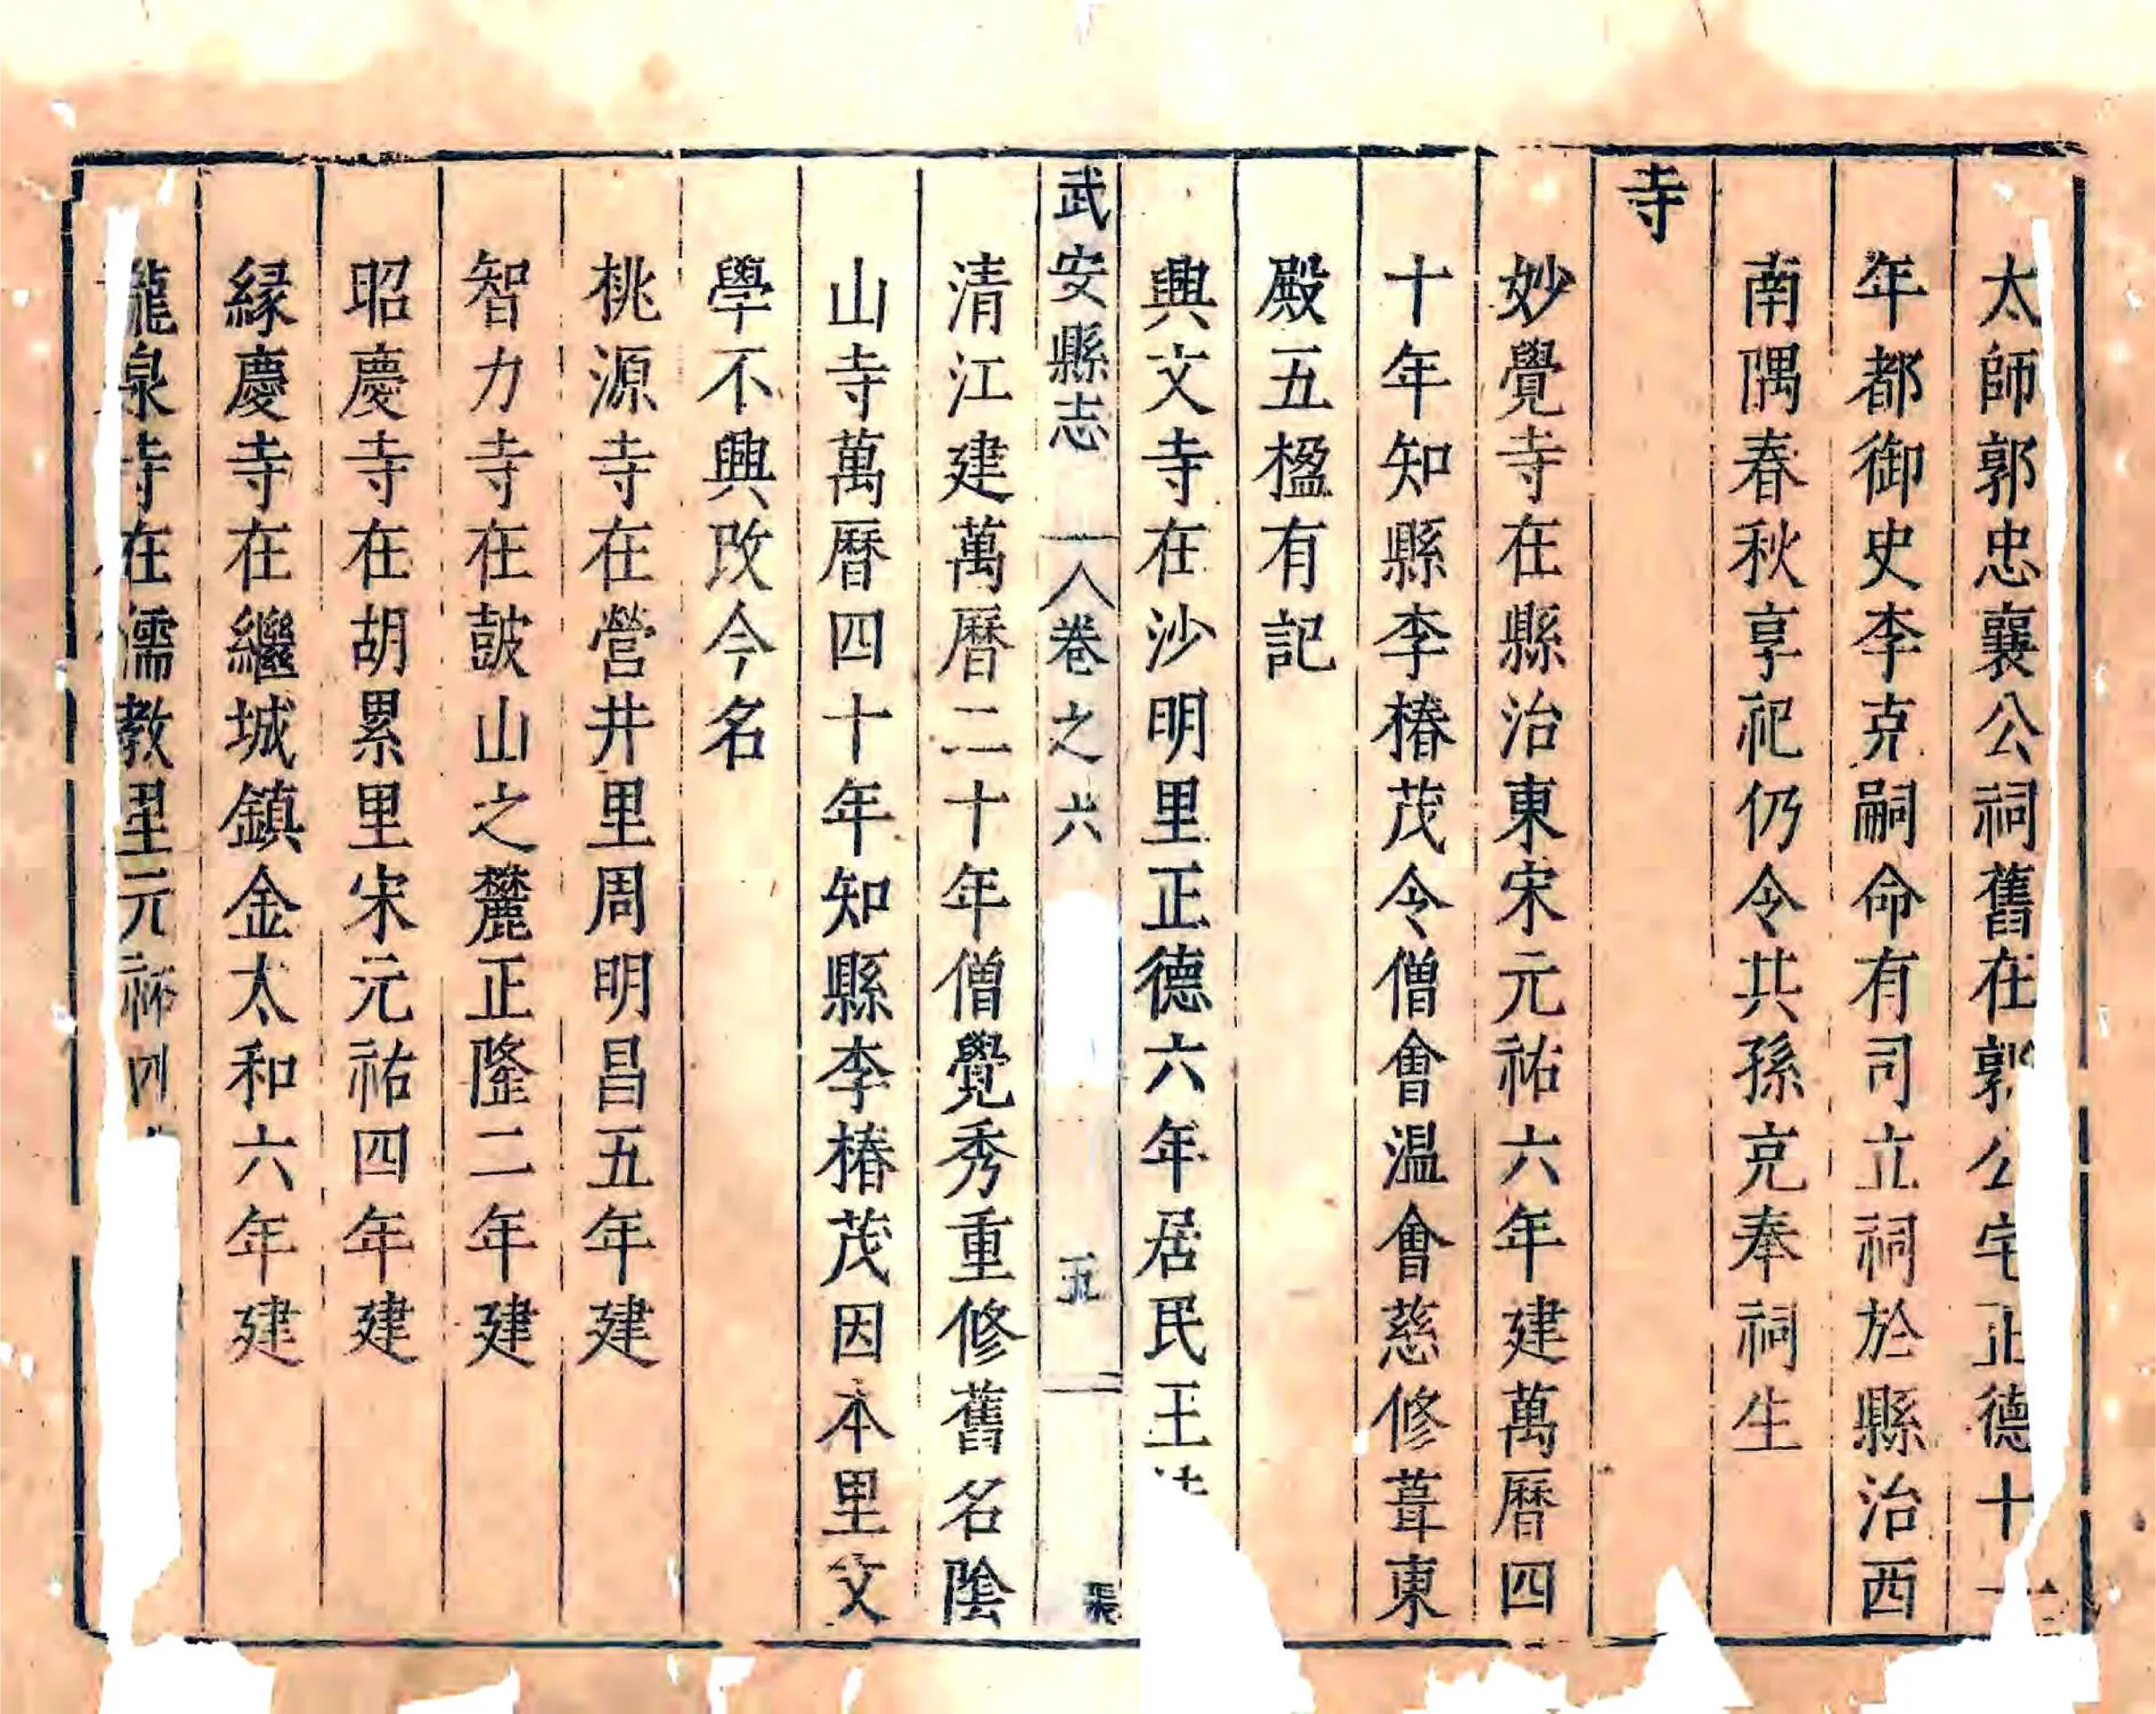 太師郭忠襄公祠舊在郭公宅正德十一
年都御史李克嗣命有司立祠於縣治西
南隅春秋享祀仍令共孫克奉祠生
寺
妙覺寺在縣治東宋元祐六年建萬曆四
十年知縣李椿茂令僧會温會慈修葺東
殿五楹有記
興文寺在沙明里正德六年居民王
武安縣志 卷之六 五
清江建萬曆二十年僧覺秀重修舊名陰
山寺萬曆四十年知縣李椿茂因本里文
學不興改今名
桃源寺在營井里周明昌五年建
智力寺在鼓山之麓正隆二年建
昭慶寺在胡累里宋元祐四年建
緣慶寺在繼城鎮金太和六年建
龍泉寺在儒教里元祐四